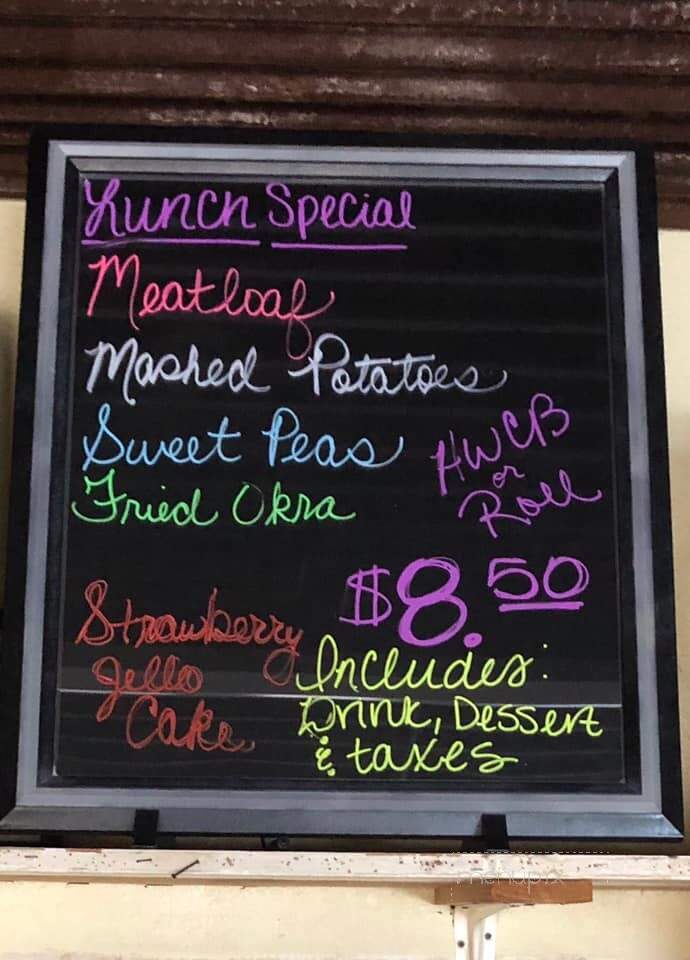 Lunch Special
Meatloaf
Mashed Potatoes
Sweet Peas
Fried Okra
HWCB
or
Roll
$8.50
Strawberry
Jello
Cake
Includes:
Drink, Dessert
& taxes
menupix